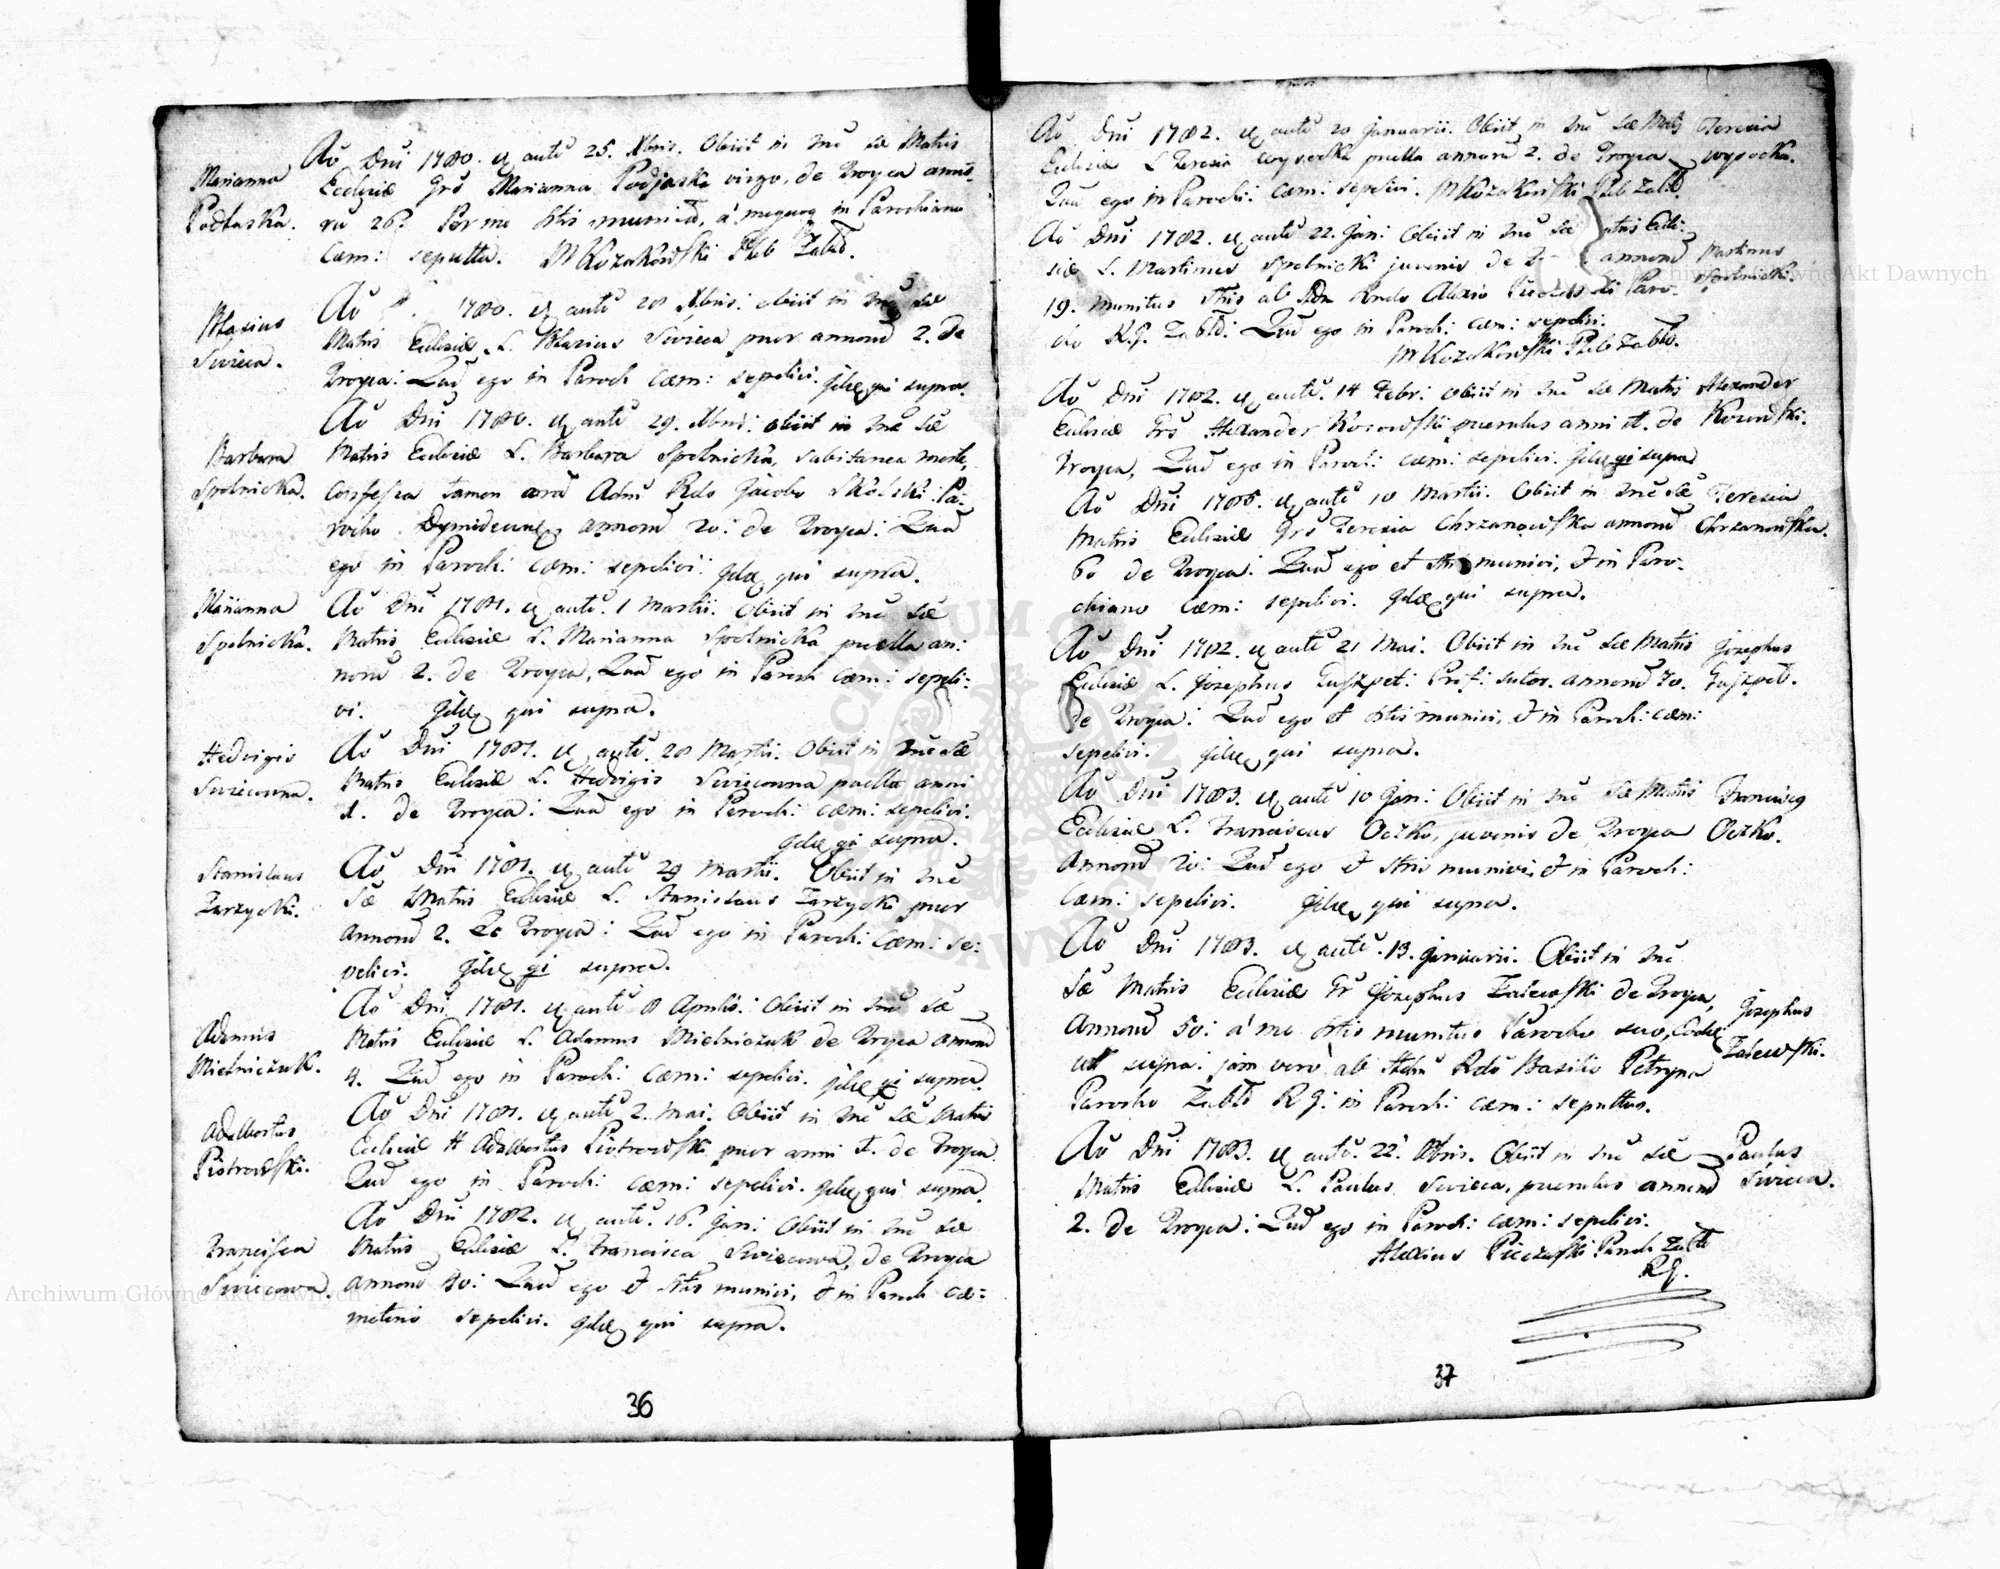 Marianna
Podłaska.
Ao Dni 1780. q̄ autē 25. Xbris. Obiit in Unē Sæ Matris
Ecclesiæ Grs Marianna Podjaska virgo, de Troyca anno-
rū 26. Per me Stis munita, a meque in Parochiano
Cœm: sepulta. M Kozakowski Pleb Zabld.
Blasius
Swieca.
Ao 1780. q̄ autē 28 Xbris: obiit in Unē Sæ
Matris Ecclesiæ L. Blasius Swieca puer annorū 2. de
Troyca: Quē ego in Paroch cœm: sepelivi. Idē qui supra.
Barbara
Spolnicka.
Ao Dni 1780. q̄ autē 29. Xbris: obiit in Unē Sæ
Matris Ecclesiæ L. Barbara Spolnicka, subitanea morte,
confessa tamen corā Admo Rdo Jacobo Skolski Pa-
rocho annorū 20: de Troyca: Quā
ego in Paroch: cœm: sepelivi: Idē qui supra.
Marianna
Spolnicka.
Ao Dni 1781. q̄ autē. 1 Martii. Obiit in Unē Sæ
Matris Ecclesiæ L. Marianna Spolnicka puella an:
norū 2. de Troyca, Quā ego in Paroch cœm: sepeli:
vi. Idē qui supra.
Hedvigis
Swiecowna.
Ao Dni 1781. q̄ autē. 28 Martii. Obiit in Unē Sæ
Matris Ecclesiæ L. Hedvigis Swiecowna puella anni
1. de Troyca: Quā ego in Paroch: cœm: sepelivi.
Idē qi supra.
Stanislaus
Zarzycki.
Ao Dni 1781. q̄ autē 29 Martii. Obiit in Unē
Sæ Matris Ecclesiæ L. Stanislaus Zarzycki puer
annorū 2. De Troyca: Quē ego in Paroch: Cœm: se:
pelivi. Idē qi supra.
Adamus
Mielniczuk.
Ao Dni 1781. q̄ autē 8 Aprilis: Obiit in Unē Sæ
Matris Ecclesiæ L. Adamus Mielniczuk de Troyca annorū
4. Quē ego in Paroch: cœm: sepelivi. Idē qi supra.
Adalbertus
Piotrowski.
Ao Dni 1781. q̄ autē 2. Mai. Obiit in Unē Sæ Matris
Ecclesiæ H Adalbertus Piotrowski puer anni 1. de Troyca.
Quē ego in Paroch: cœm: sepelivi. Idē qui supra.
Francisca
Swiecowa.
Ao Dni 1782. q̄ autē. 16. Jan: Obiit in Unē Sæ
Matris Ecclesiæ L. Francisca Swiecowa, de Troyca
annorū 40: Quā ego et Stis munivi, et in Paroch cœ:
meterio sepelivi. Idē qui supra.
36
Ao Dni 1782. q̄ autē 20 Januarii. Obiit in Unē Sæ Matris
Ecclesiæ L Teresia Wysocka puella annorū 2. de Troyca
Quā ego in Paroch: cœm: sepelivi. M Kozakowski Pleb Zabld.
Teresia
wysocka.
Ao Dni 1782. q̄ autē 22. Jan: Obiit in Unē Sæ atris Eccle:
siæ L. Martinus Spolnicki juvenis de annorū
19. munitus Stis ab Rndo Alexio Pieczewski Paro-
cho R.G. Zabld: Quē ego in Paroch: cœm: sepelivi.
M Kozakowski Pleb Zabld.
Martinus
Spolnicki.
Ao Dni 1782. q̄ autē. 14 Febr: Obiit in Unē Sæ Matris
Ecclesiæ Grs Alexander Kosowski puerulus anni 1. de
Troyca, Quē ego in Paroch: cœm: sepelivi. Idē qi supra
Alexander
Ao Dni q̄ autē 10 Martii. Obiit in Unē Sæ
Matris Ecclesiæ Grs Teresia Chrzanowska annorū
60 de Troyca: Quā ego et Stis munivi, et in Paro-
chiano cœm: sepelivi. Idē qui supra.
Teresia
Chrzanowska.
Ao Dni 1782. q̄ autē 21 Mai. Obiit in Unē Sæ Matris
Ecclesiæ L. Josephus Prof: sutor. annorū 70.
de Troyca: Quē ego et Stis munivi, et in Paroch: cœm:
sepelivi. Idē qui supra.
Josephus
Ao Dni 1783. q̄ autē 10 Jan: Obiit in Unē Sæ Matris
Ecclesiæ L. Franciscus Oczko, juvenis de Troyca
annorū 20: Quē ego et Stis munivi, et in Paroch:
cœm: sepelivi. Idē qui supra.
Franciscus
Oczko.
Ao Dni 1783. q̄ autē. 13. Januarii. Obiit in Unē
Sæ Matris Ecclesiæ Gr Josephus Zalewski de Troyca,
annorū 50: a me Stis munitus Parocho suo,
ut supra: jam vero ab Adm Rdo Basilio Petryna
Parocho Zabld R G: in Paroch: cœm: sepultus.
Josephus
Zalewski.
Ao Dni 1783. q̄ autē. 22. Xbris. Obiit in Unē Sæ
Matris Ecclesiæ L. Paulus Swieca, puerulus annorū
2. de Troyca: Quē ego in Paroch: cœm: sepelivi.
Alexius Pieczewski Paroch Zabld
R.G.
Paulus
Swieca.
37
Archiwum Główne Akt Dawnych
Archiwum Główne Akt Dawnych